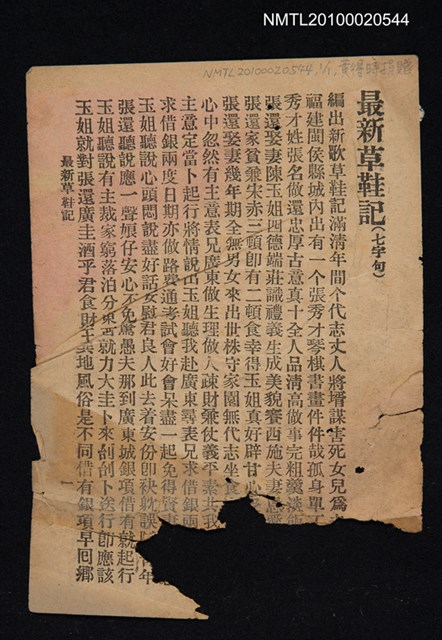 NMTL20100020544
NMTL20100020544, 1/1, 黃得時捐贈
最新草鞋記(七字句)
編出新歌草鞋記滿清年間个代志丈人將壻謀害死女兒爲
福建閩侯縣城內出有一个張秀才琴棋書畫件件哉孤身單
秀才姓張名做還忠厚古意真十全人品清高做事完粗羹淡飯
張還娶妻陳玉姐四德端莊識禮義生成美貌賽西施夫妻
張還家貧兼宋赤三頓卽有二頓食幸得玉姐真好辟甘心
張還娶妻幾年期全無男女來出世株守家園無代志坐食
心中忽然有主意表兄廣東做生理做人疎財兼仗義平素共我
主意定當卜起行將情說出玉姐聽我赴廣東尋表兄求借銀兩
求借銀兩度日期亦做路費通考試會好會呆盡一起免得賢妻
玉姐聽說心頭悶說盡好話安慰君良人此去着安份卽袂躭誤
張還聽說應一聲娘仔安心不免驚愚夫那到廣東城銀項借有就起行
玉姐聽說有主裁家窮落泊分東西就力大圭卜來刣刣卜送行卽應該
玉姐就對張還廣圭酒乎君食財王異地風俗是不同借有銀項早囘鄉
最新草鞋記